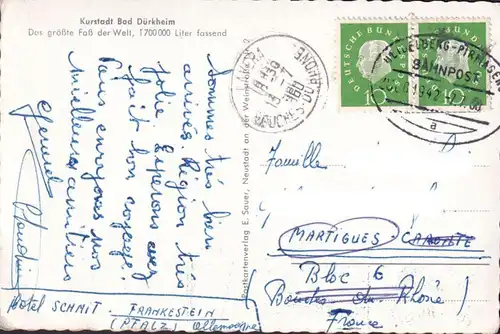 Kurstadt Bad Dürkheim
Das größte Faß der Welt, 1700000 Liter fassend
Sommes très bien
arrivés. Région très
jolie. Espérons avez
fait bon voyage.
Vous envoyons nos
meilleures amitiés
Hotel SCHMIT - FRANKESTEIN
(PFALZ) Allemagne
Postkartenverlag E. Sauer, Neustadt an der Weinstraße
DEUTSCHE BUNDESPOST
10
DEUTSCHE BUNDESPOST
10
HEIDELBERG-PIRMASENS
BAHNPOST
a
BOUCHES-DU-RHONE
Famille
MARTIGUES
Bloc 6
Bouches du Rhône
France